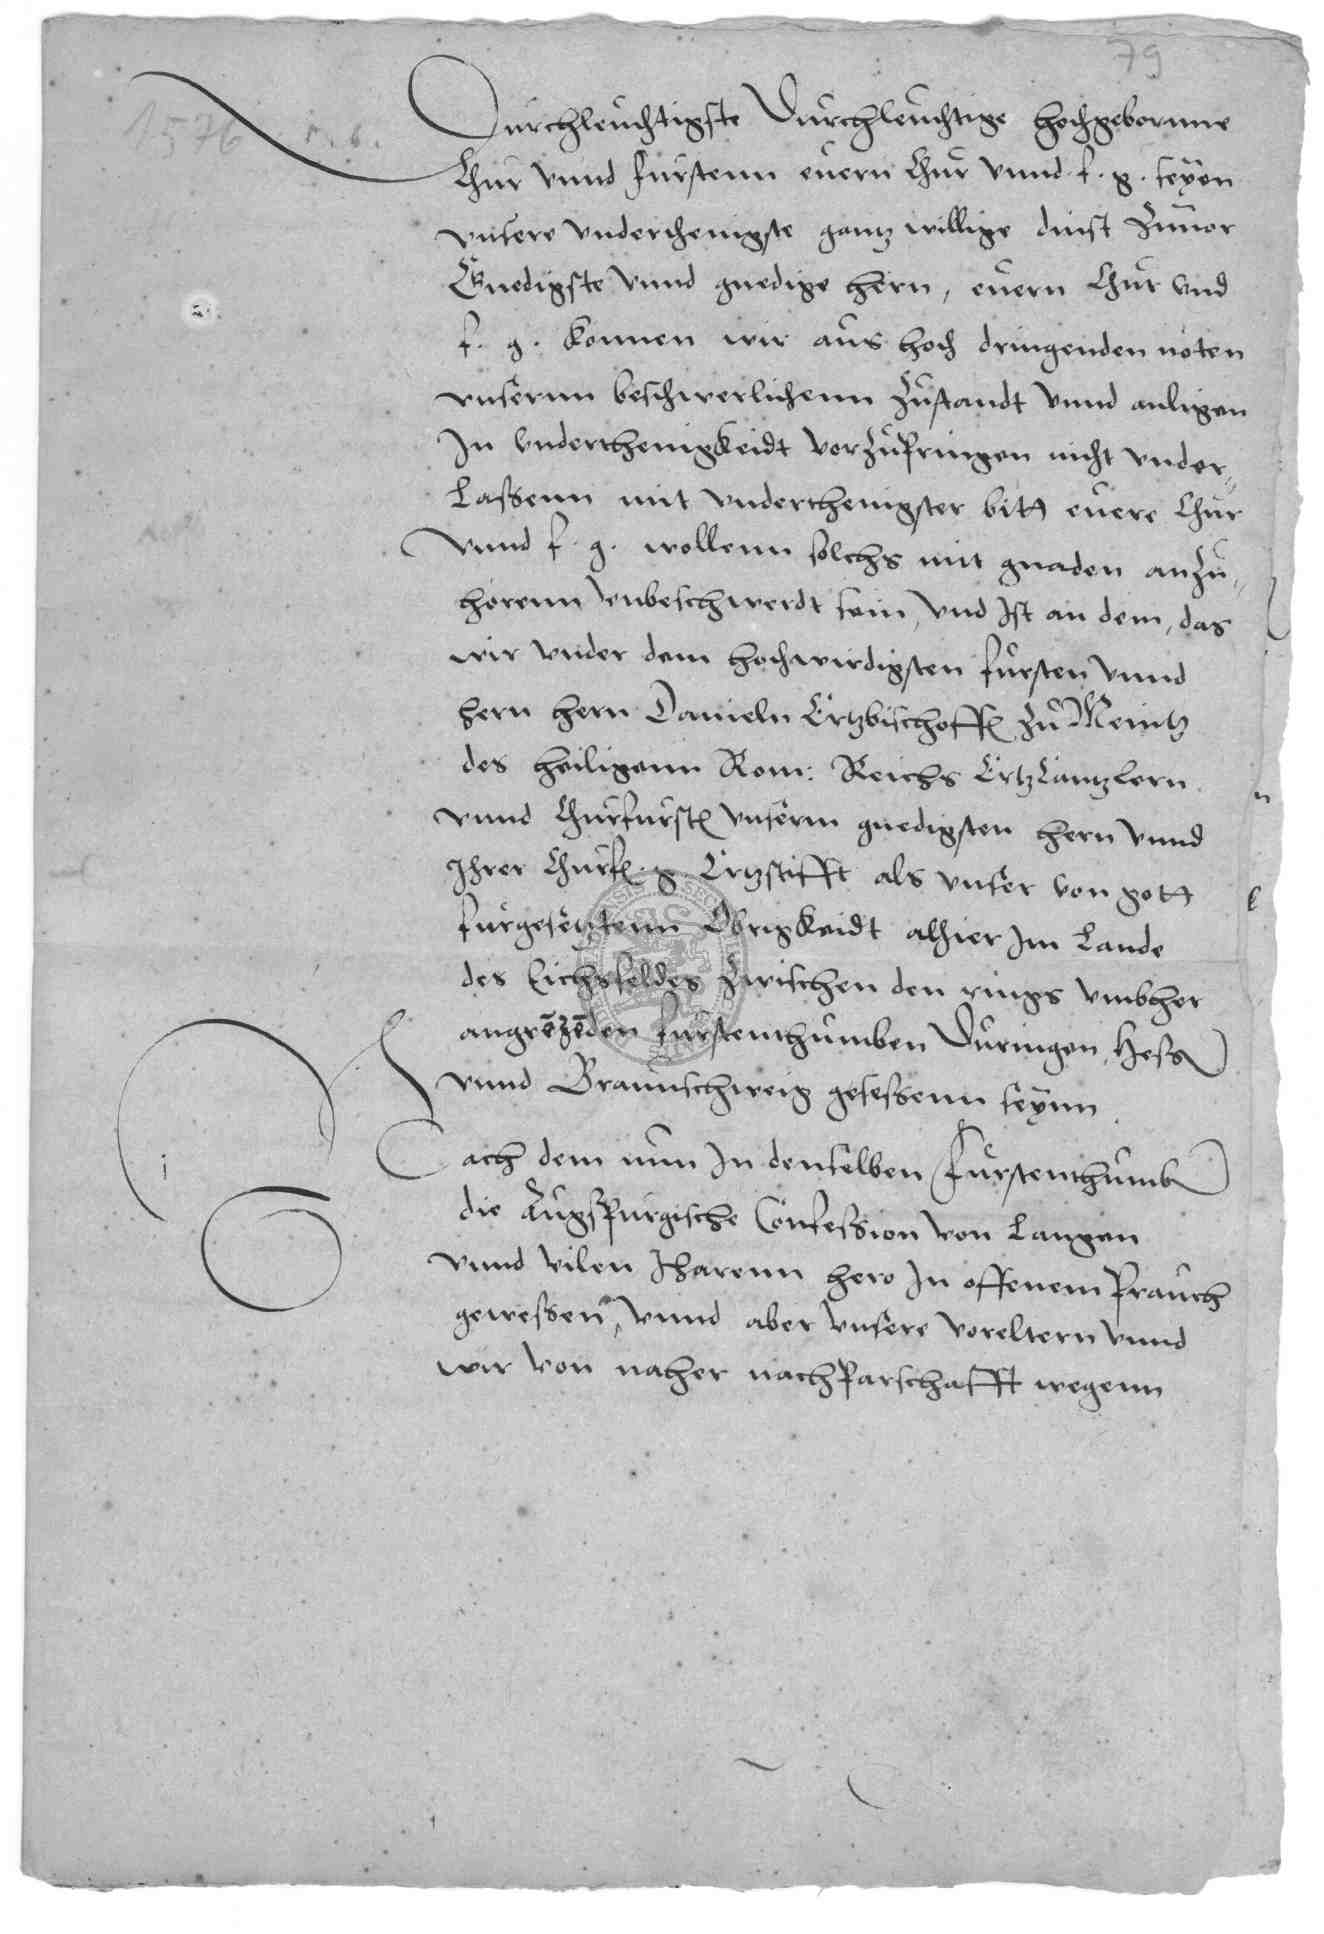 79
1576
Durchleuchtigste Durchleuchtige hochgebornne
Chur vnnd fursten euern Chur vnnd f. g. seyen
vnsere vnderthenigste gantz willige dinst Zuuor
Gnedigste vnnd gnedige hern, euern Chur vnd
f. g. konnen wir aus hoch dringenden nöten
vnsernn beschwerlichenn Zustandt vnnd anligen
In vnderthenigkeidt vorzupringen nicht vnder¬
Lassenn mit vnderthenigster bitt euere Chur
vnnd f. g. wollenn solchs mit gnaden anzu¬
horenn vnbeschwerdt sein, vnd Ist an dem, das
wir vnder dem hochwirdigsten fursten vnnd
hern hern Danieln Ertzbischoffen zu Meintz
des heiligenn Rom: Reichs ErtzCantzlern
vnnd Churfursten vnserm gnedigsten hern vnnd
Ihrer Churf. g Ertzstifft als vnser von gott
furgesetztenn Obrigkeidt alhier Im Lande
des Eichsfeldes Zwischen den rings vmbher
angrēzēden furstenthumben Duringen, Hessen
vnnd Braunschweig gesessenn seynn
Nach dem nun In denselben furstenthumben
die Augspurgische Confession von Langen
vnnd vilen Jharenn hero In offenem prauch
gewessen, vnnd aber vnsere voreltern vnnd
wir von naher nachparschafft wegenn